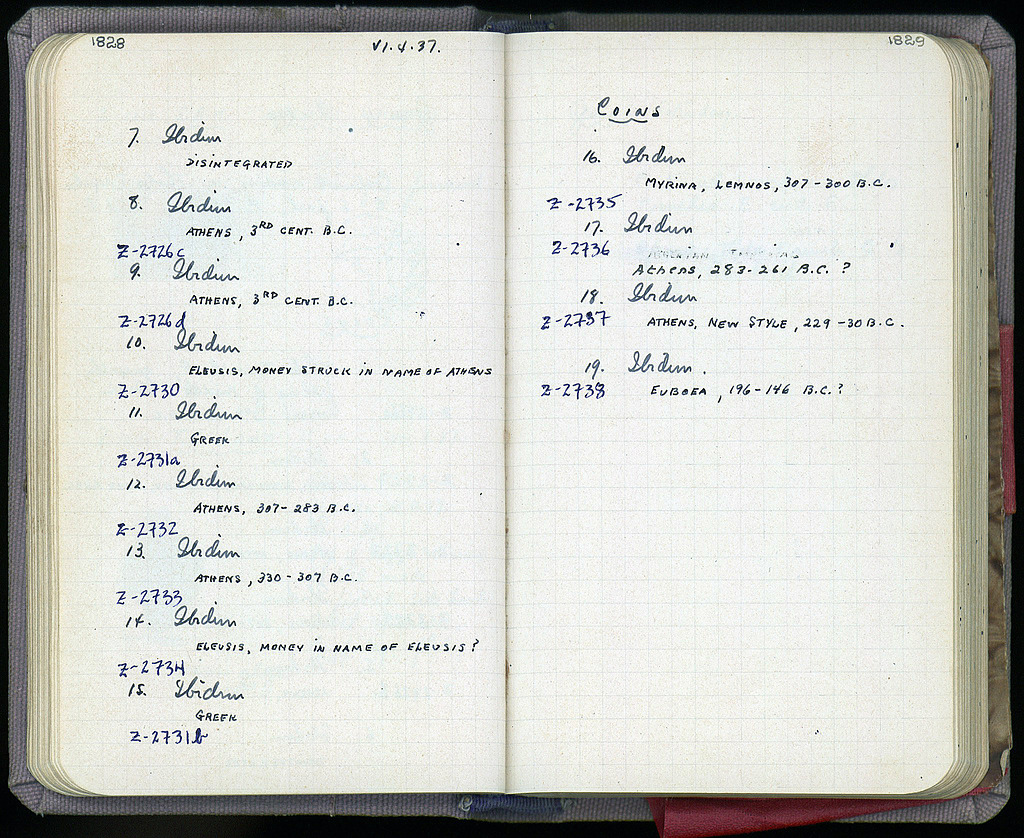 1828
VI.4.37.
7. Ibidim
DISINTEGRATED
8. Ibidim
ATHENS, 3RD CENT. B.C.
Z-2726c
9. Ibidim
ATHENS, 3RD CENT. B.C.
Z-2726d
10. Ibidim
ELEUSIS, MONEY STRUCK IN NAME OF ATHENS
Z-2730
11. Ibidim
GREEK
Z-2731a
12. Ibidim
ATHENS, 307-283 B.C.
Z-2732
13. Ibidim
ATHENS, 330-307 B.C.
Z-2733
14. Ibidim
ELEUSIS, MONEY IN NAME OF ELEUSIS?
Z-2734
15. Ibidim
GREEK
Z-2731b
1829
COINS
16. Ibidim
MYRINA, LEMNOS, 307-300 B.C.
Z-2735
17. Ibidim
Z-2736
ATHENS, 283-261 B.C. ?
18. Ibidim
Z-2737 ATHENS, NEW STYLE, 229-30 B.C.
19. Ibidim.
Z-2738 EUBOEA, 196-146 B.C.?